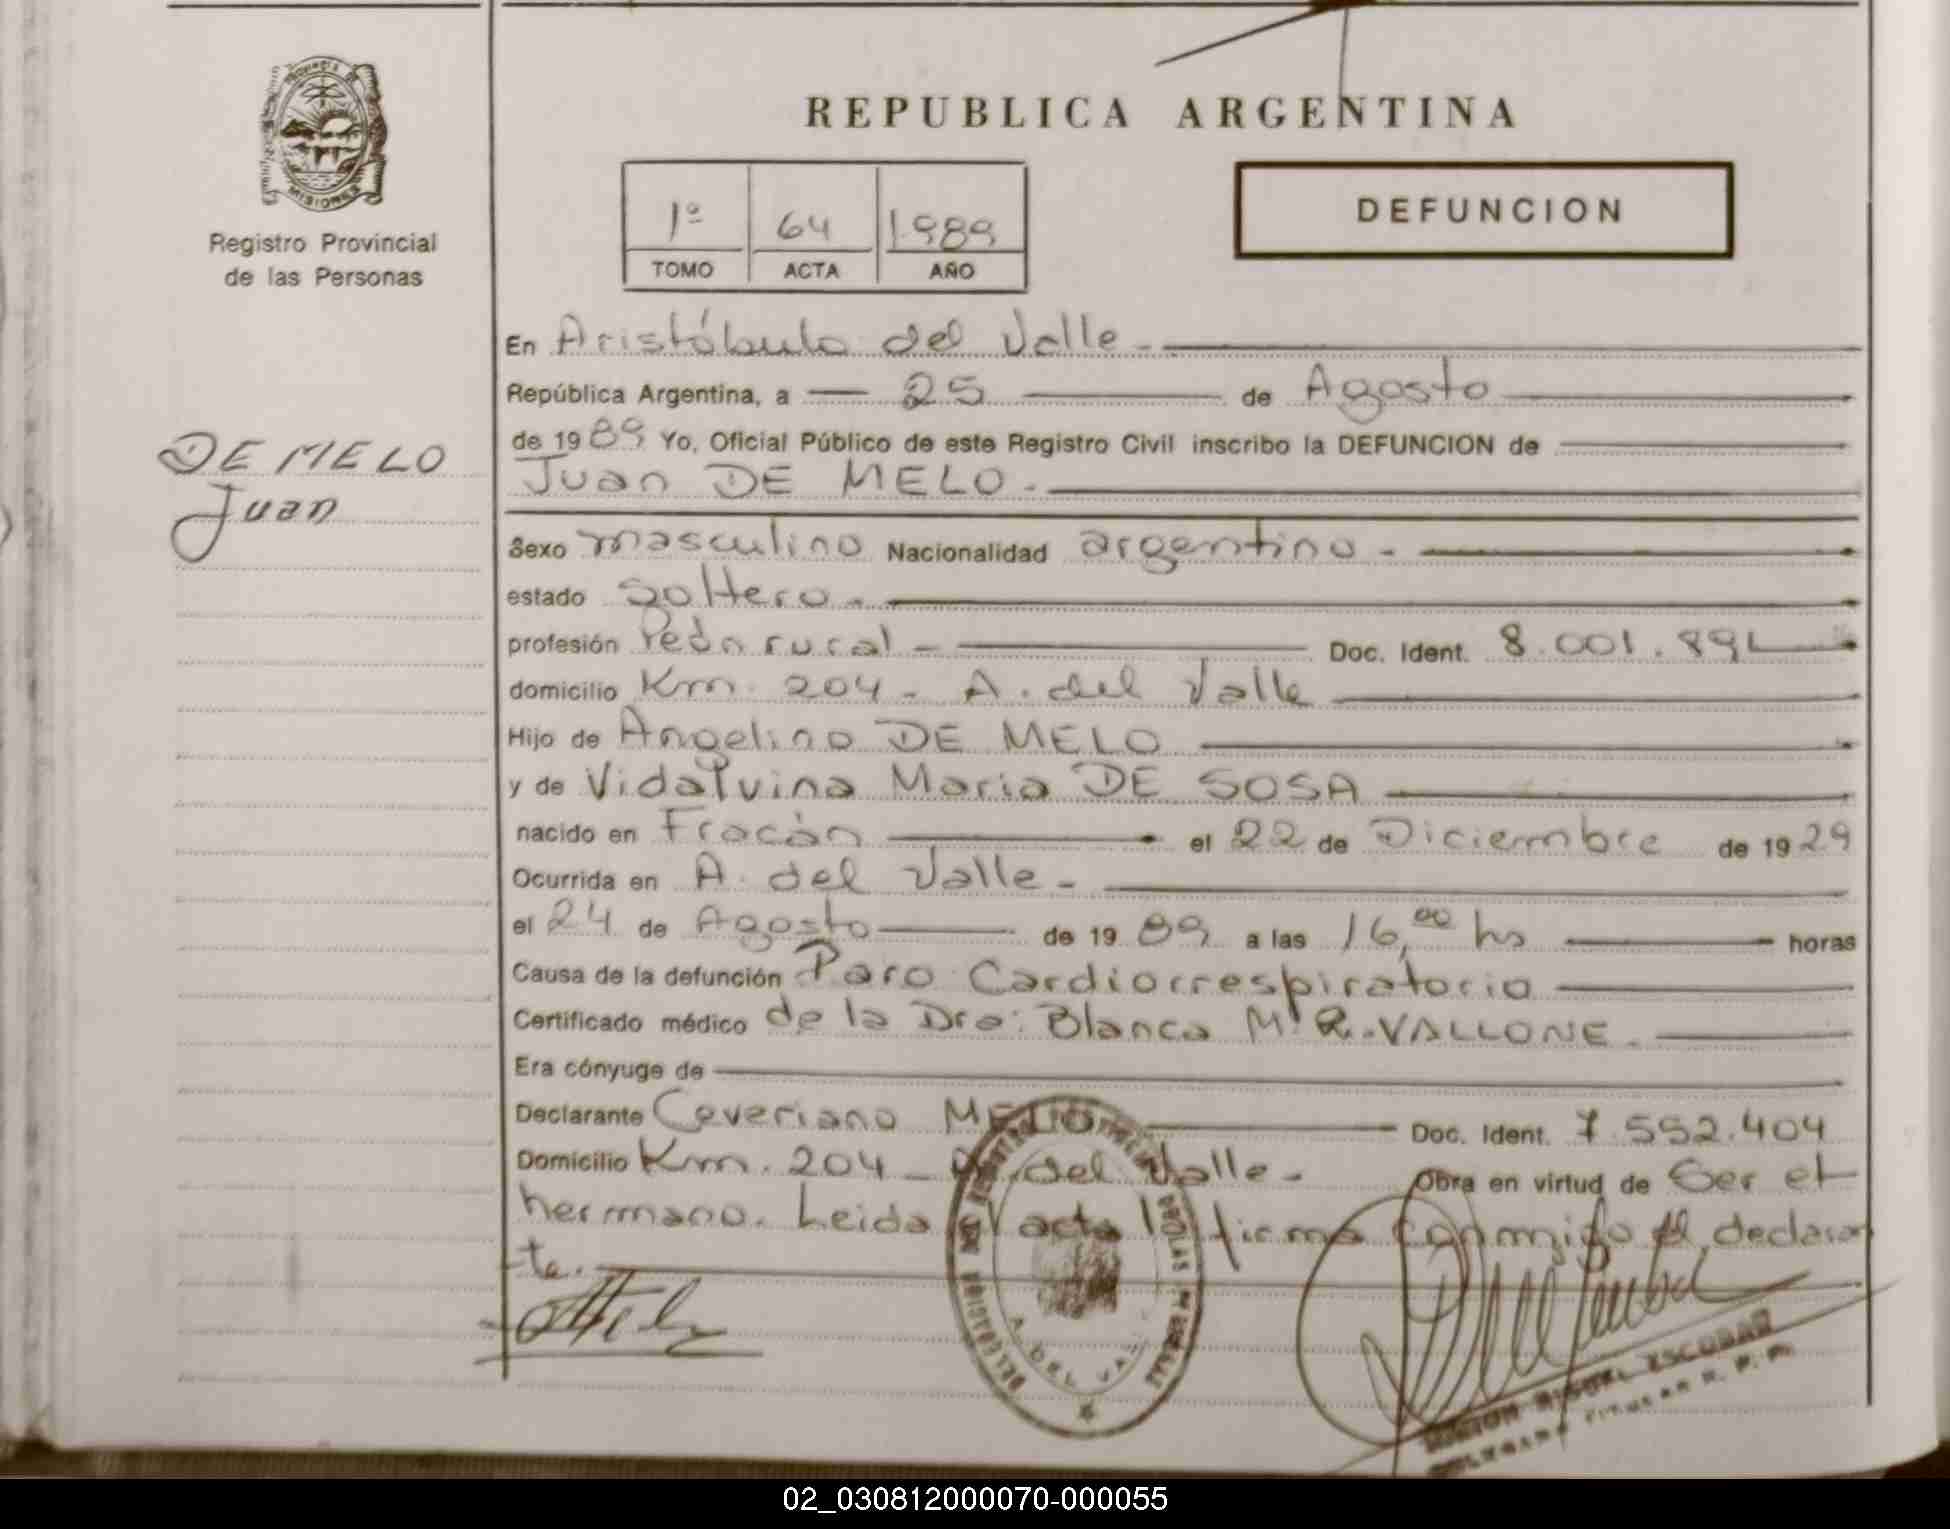 PROVINCIA DE
MISIONES
Registro Provincial
de las Personas
DE MELO
Juan
REPUBLICA ARGENTINA
1º 64 1989
TOMO ACTA AÑO
DEFUNCION
En Aristóbulo del Valle -
República Argentina, a 25 de Agosto
de 1989 Yo, Oficial Público de este Registro Civil inscribo la DEFUNCION de
Juan DE MELO.
Sexo masculino Nacionalidad argentino -
estado soltero.
profesión Peón rural - Doc. Ident. 8.001.891
domicilio Km. 204 - A. del Valle
Hijo de Angelino DE MELO
y de Vidalvina Maria DE SOSA
nacido en Fracán el 22 de Diciembre de 1929
Ocurrida en A. del Valle -
el 24 de Agosto de 1989 a las 16,00 hs horas
Causa de la defunción Paro Cardiorrespiratorio
Certificado médico de la Dra: Blanca M. R. VALLONE.
Era cónyuge de
Declarante Ceveriano MELO Doc. Ident. 7.552.404
Domicilio Km. 204 - A. del Valle - Obra en virtud de Ser el
hermano. Leida el acta la firma conmigo el declaran
te.
A. DEL VA
MIGUEL ESCOBAR
TITULAR R. P. P.
02_030812000070-000055